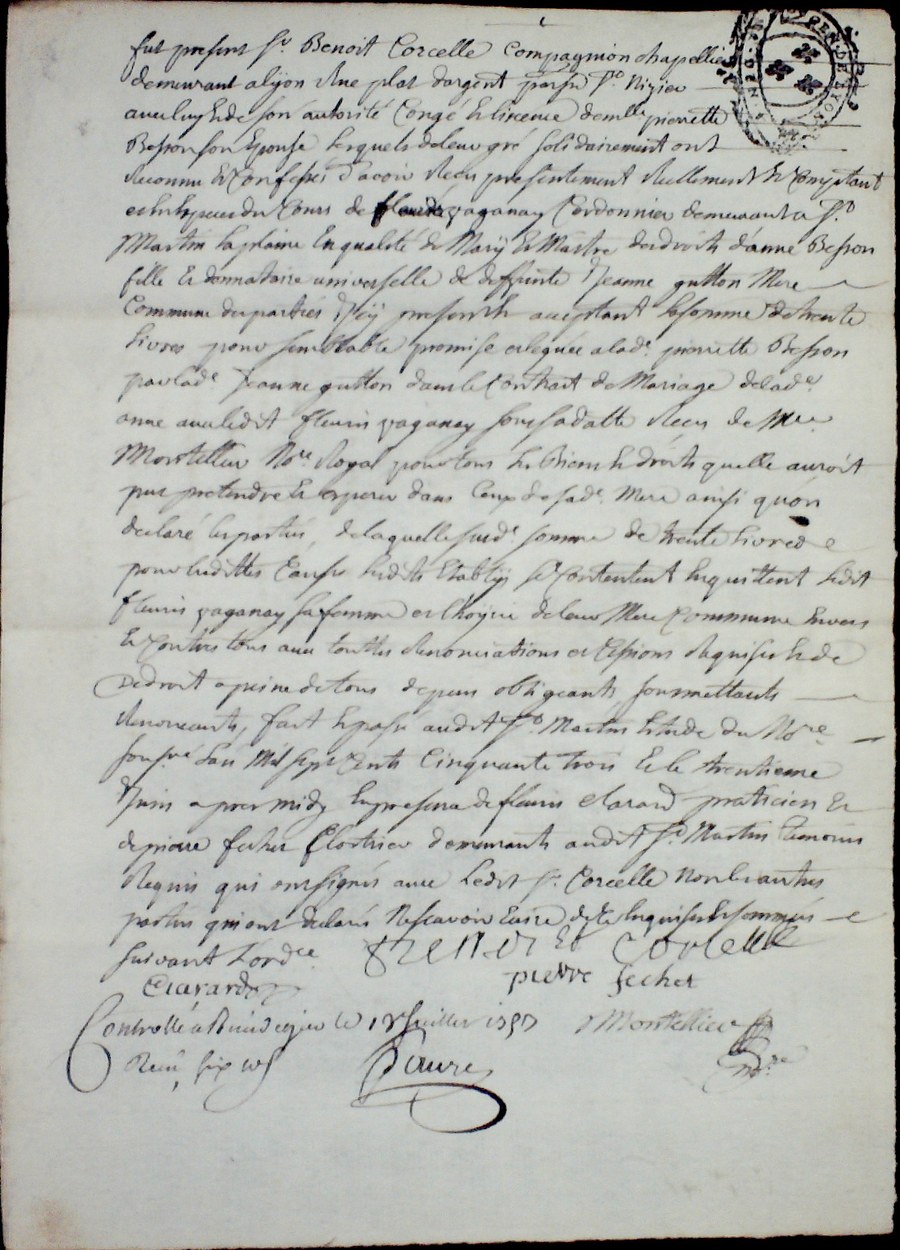 fut present Sr Benoit Corcelle Compagnion chapellier
demeurant a lyon Rue plat d'argent parsse St Nizier
avec luy et de son autorité Congé et licence demlle pierrette
Besson son Epouse lesquels de leur gré solidairement ont
Reconnu et Confessés d'avoir Receu presentement Reellement et Comptant
et en Espece du Cours de fleuris vaganay Cordonnier demeurant a St
Martin la plaine En qualité de Mary et Maitre des droits d'anne Besson
fille et donnataire universelle de deffunte Jeanne gutton Mere
Commune des parties Icy present et acceptant la somme de trente
Livres pour semblable promise et leguée a lade pierrette Besson
par lade Jeanne gutton dans le Contrat de Mariage de lade
anne avec ledit fleuris vaganay sous sa datte Receu de Mre
Montellier Nore Royal pour tous les biens et droits quelle auroit
pus pretendre et esperer dans Ceux de sade Mere ainsi qu'on
declaré les parties, de laquelle sude somme de trente Livres
pour les dittes Causes lesdits Etablys se Contentent En quittent ledit
fleuris vaganay sa femme et l'hoyrie de leur Mere Commune Envers
et Contre tous avec touttes Renonciations et Cessions Requises et de
De droit a peine de tous depens obligeants soumettants
Renonceants, fait et passé audit St Martin Etude du Nore
soussné L'an Mil sept Cents Cinquante trois et le trentieme
Juin apres midy En presence de fleuris Clarard praticien et
de pierre fecher Cloutrier demeurants audit St Martin temoins
Requis qui ont signés avec Ledit Sr Corcelle Non les autres
parties qui ont declarés Ne scavoir Ecrire de ce Enquises et sommées
suivant L'ordce
Benoit Corcelle
Clarard
pierre fecher
Controllé a Rivedegier le 1r Juillet 1753
Montellier
Receu six sols
Faure
Nore